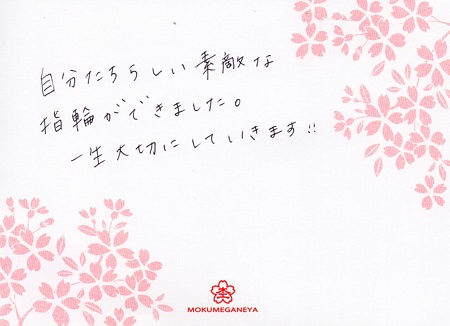 自分たちらしい素敵な
指輪ができました。
一生大切にしていきます!!
MOKUMEGANEYA